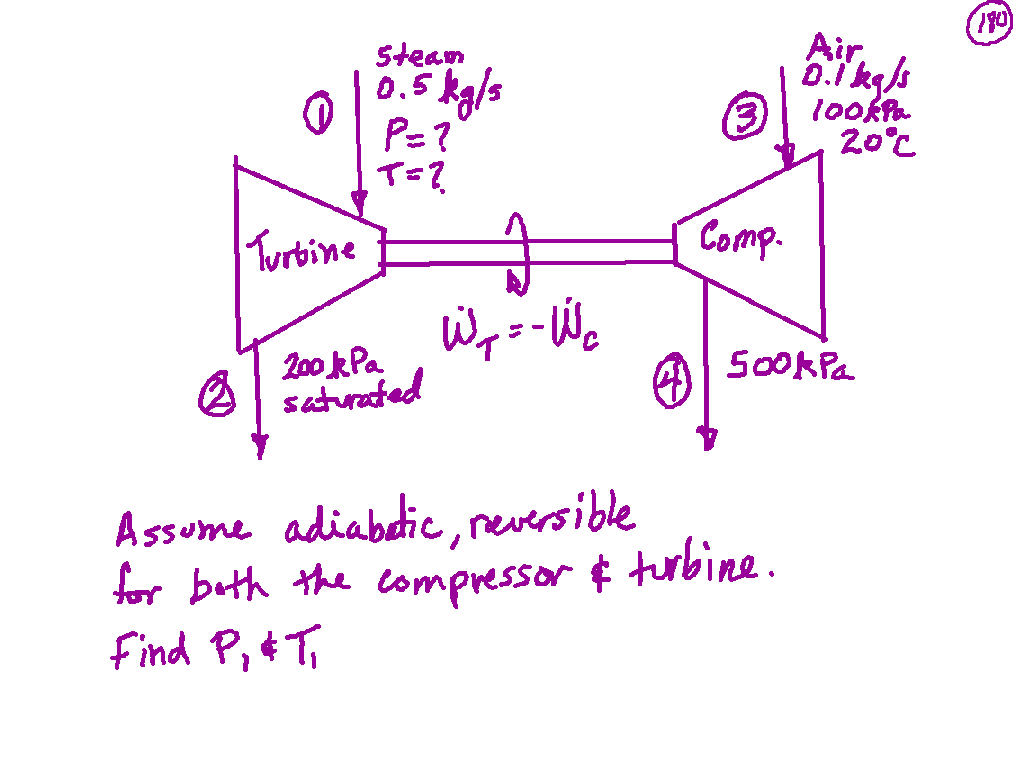 180
Steam
0.5 kg/s
P = ?
T = ?
①
Air
0.1 kg/s
100 kPa
20°C
③
Turbine
Comp.
Ẇ_T = -Ẇ_c
②
200 kPa
saturated
④
500 kPa
Assume adiabatic, reversible
for both the compressor & turbine.
Find P₁ & T₁